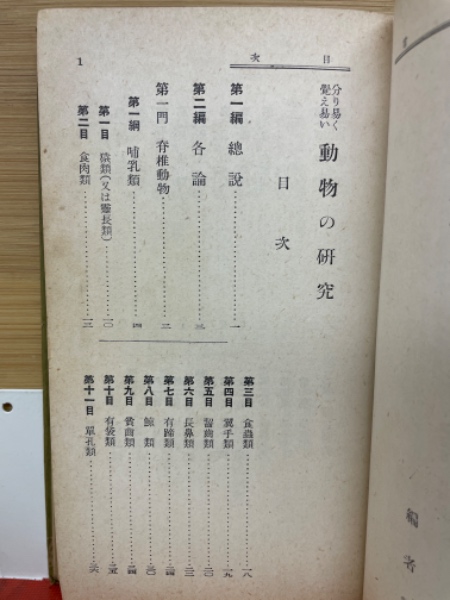 目次
1
分り易く
覺え易い
動物の硏究
目次
第一編 總説……一
第二編 各論……二
第一門 脊椎動物……二
第一綱 哺乳類……四
第一目 猿類(又は靈長類)……一〇
第二目 食肉類……一三
第三目 食蟲類……一八
第四目 翼手類……一九
第五目 齧齒類……二〇
第六目 長鼻類……二三
第七目 有蹄類……二四
第八目 鯨類……三〇
第九目 貧齒類……三四
第十目 有袋類……三五
第十一目 單孔類……三六
編者